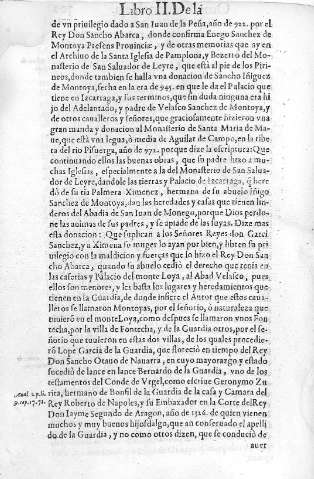 Libro II. De la
de vn priuilegio dado a San Iuan de la Peña, año de 922. por el
Rey Don Sancho Abarca, donde confirma Enego Sanchez de
Montoya Presens Prouinciæ, y de otras memorias que ay en
el Archiuo de la Santa Iglesia de Pamplona, y Bezerro del Mo-
nasterio de San Saluador de Leyre, que está al pie de los Pirí-
neos, donde tambien se halla vna donacion de Sancho Iñiguez
de Montoya, fecha en la era de 945. en que le da el Palacio que
tiene en y sus terminos, que sin duda ninguna era hi
jo del Adelantado, y padre de Velasco Sanchez de Montoya, y
de otros caualleros y señores, que graciosamente hizieron vna
gran manda y donacion al Monasterio de Santa Maria de Ma-
ue, que está vna legua, ò media de Aguilar de Campo, en la ribe
ra del rio Pisuerga, año de 972. porque dize la escriptura: Que
continuando ellos las buenas obras, que su padre hizo a mu-
chas Iglesias, especialmente a la del Monasterio de San Salua-
dor de Leyre, dandole las tierras y Palacio de q̃ here
dò de su tia Palmera Ximenez, hermana de su abuelo Iñigo
Sanchez de Montoya, dan las heredades y casas que tienen lin-
deros del Abadia de San Iuan de Monego, porque Dios perdo-
ne las animas de sus padres, y se apiade de las suyas. Dize mas
esta donacion: Que suplican a los Señores Reyes don Garci
Sanchez, y a Ximena su muger lo ayan por bien, y libren su pri
uilegio con la maldicion y fuerças que lo hizo el Rey Don San
cho Abarca, quando su abuelo cediò el derecho que tenia en
las caserias y Palacio del monte Loya, al Abad Velasco, pues
ellos son menores, y les basta los lugares y heredamientos que
tienen en la Guardia, de donde infiere el Autor que estos caua-
lleros se llamaron Montoyas, por el señorio, ò naturaleza que
tuuierõ en el monte Loya, como despues se llamaron vnos Fon
techa, por la villa de Fontecha, y de la Guardia otros, por el se-
ñorio que tuuieron en estas dos villas, de los quales procedie-
rõ Lope Garcia de la Guardia, que floreció en tiempo del Rey
Don Sancho Otauo de Nauarra, en cuyo mayorazgo y estado
sucediò de lance en lance Bernardo de la Guardia, vno de los
testamentos del Conde de Vrgel, como escriue Geronymo Zu
rita, hermano de Bonfil de la Guardia de la casa y Camara del
Rey Roberto de Napoles, y su Embaxador en la Corte del Rey
Don Iayme Segundo de Aragon, año de 1326. de quien vienen
muchos y muy buenos hijosdalgo, que an conseruado el apelli
do de la Guardia, y no como otros dizen, que se conduciò de
auer